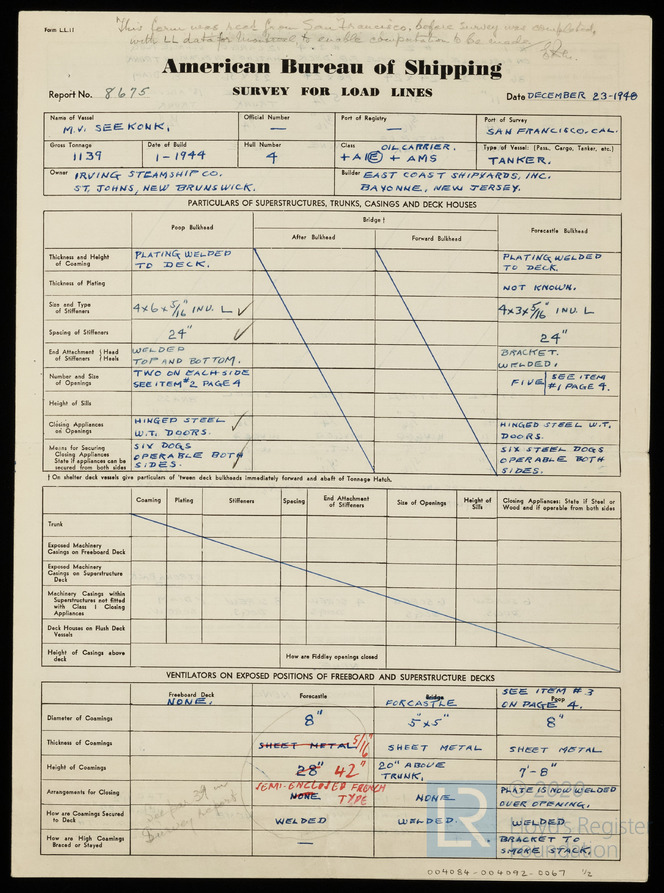 Form LL.11
This form was read from San Francisco, before survey was completed,
with LL data for Montreal, to enable computation to be made
American Bureau of Shipping
Report No. 8675
SURVEY FOR LOAD LINES
Date DECEMBER 23-1948
Name of Vessel
M.V. SEEKONK.
Official Number
—
Port of Registry
—
Port of Survey
SAN FRANCISCO. CAL.
Gross Tonnage
1139
Date of Build
1-1944
Hull Number
4
Class
OIL CARRIER.
+A1Ⓔ + AMS
Type of Vessel: (Pass., Cargo, Tanker, etc.)
TANKER.
Owner IRVING STEAMSHIP CO.
ST. JOHNS, NEW BRUNSWICK.
Builder EAST COAST SHIPYARDS, INC.
BAYONNE, NEW JERSEY.
PARTICULARS OF SUPERSTRUCTURES, TRUNKS, CASINGS AND DECK HOUSES
Poop Bulkhead
Bridge †
After Bulkhead
Forward Bulkhead
Forecastle Bulkhead
Thickness and Height
of Coaming
PLATING WELDED
TO DECK.
PLATING WELDED
TO DECK.
Thickness of Plating
NOT KNOWN.
Size and Type
of Stiffeners
4x6x5/16" INV. L ✓
4x3x5/16" INV. L
Spacing of Stiffeners
24" ✓
24"
End Attachment } Head
of Stiffeners } Heels
WELDED
TOP AND BOTTOM.
BRACKET.
WELDED.
Number and Size
of Openings
TWO ON EACH SIDE
SEE ITEM #2 PAGE 4
FIVE SEE ITEM
#1 PAGE 4.
Height of Sills
Closing Appliances
on Openings
HINGED STEEL
W.T. DOORS. ✓
HINGED STEEL W.T.
DOORS.
Means for Securing
Closing Appliances
State if appliances can be
secured from both sides
SIX DOGS
OPERABLE BOTH
SIDES. ✓
SIX STEEL DOGS
OPERABLE BOTH
SIDES.
† On shelter deck vessels give particulars of 'tween deck bulkheads immediately forward and abaft of Tonnage Hatch.
Coaming
Plating
Stiffeners
Spacing
End Attachment
of Stiffeners
Size of Openings
Height of
Sills
Closing Appliances; State if Steel or
Wood and if operable from both sides
Trunk
Exposed Machinery
Casings on Freeboard Deck
Exposed Machinery
Casings on Superstructure
Deck
Machinery Casings within
Superstructures not fitted
with Class I Closing
Appliances
Deck Houses on Flush Deck
Vessels
Height of Casings above
deck
How are Fiddley openings closed
VENTILATORS ON EXPOSED POSITIONS OF FREEBOARD AND SUPERSTRUCTURE DECKS
Freeboard Deck
NONE.
Forecastle
Bridge
FORCASTLE
SEE ITEM #3
Poop
ON PAGE 4.
Diameter of Coamings
8"
5"x5"
8"
Thickness of Coamings
SHEET METAL 5/16"
SHEET METAL
SHEET METAL
Height of Coamings
28" 42"
20" ABOVE
TRUNK.
7'-8"
Arrangements for Closing
SEMI-ENCLOSED FRENCH
NONE TYPE
NONE
PLATE IS NOW WELDED
OVER OPENING.
See par 39 in
Survey report
How are Coamings Secured
to Deck
WELDED
WELDED.
WELDED
How are High Coamings
Braced or Stayed
—
BRACKET TO
SMOKE STACK.
LR
© 2020
Lloyd's Register
Foundation
004084-004092-0067 1/2